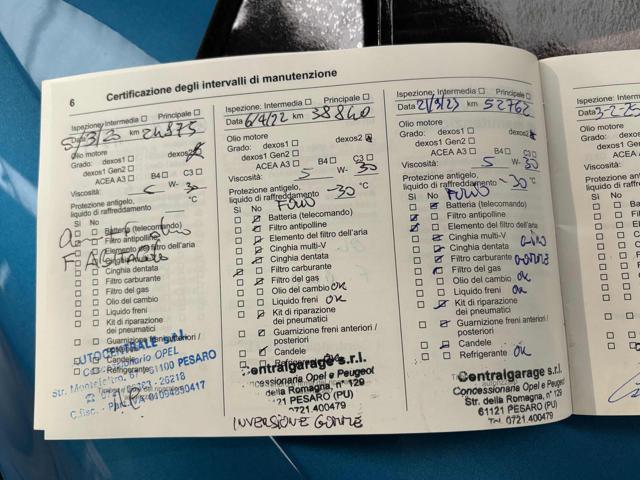 6 Certificazione degli intervalli di manutenzione
Ispezione: Intermedia Principale
Data 5/3/2 km 24875
Olio motore
Grado: dexos1 dexos2
dexos1 Gen2
ACEA A3 B4 C3
Viscosità: 5 W- 30
Protezione antigelo,
liquido di raffreddamento °C
Sì No
Batteria (telecomando)
Filtro antipolline
Elemento del filtro dell'aria
Cinghia multi-V
Cinghia dentata
Filtro carburante
Filtro del gas
Olio del cambio
Liquido freni
Kit di riparazione
dei pneumatici
Guarnizione freni anteriori /
posteriori
Candele
Refrigerante
AUTOCENTRALE s.r.l.
Concessionario OPEL
61100 PESARO
26218
Ispezione: Intermedia Principale
Data 6/4/22 km 38840
Olio motore
Grado: dexos1 dexos2
dexos1 Gen2
ACEA A3 B4 C3
Viscosità: 5 W- 30
Protezione antigelo,
liquido di raffreddamento -30 °C
Sì No
Batteria (telecomando)
Filtro antipolline
Elemento del filtro dell'aria
Cinghia multi-V
Cinghia dentata
Filtro carburante
Filtro del gas
Olio del cambio OK
Liquido freni OK
Kit di riparazione
dei pneumatici
Guarnizione freni anteriori /
posteriori
Candele
Refrigerante OK
Centralgarage s.r.l.
Concessionaria Opel e Peugeot
Str. della Romagna, n° 129
61121 PESARO (PU)
0721.400479
INVERSIONE GOMME
Ispezione: Intermedia Principale
Data 21/3/23 km 52762
Olio motore
Grado: dexos1 dexos2
dexos1 Gen2
ACEA A3 B4 C3
Viscosità: 5 W- 30
Protezione antigelo,
liquido di raffreddamento -30 °C
Sì No
Batteria (telecomando)
Filtro antipolline
Elemento del filtro dell'aria
Cinghia multi-V
Cinghia dentata
Filtro carburante
Filtro del gas
Olio del cambio OK
Liquido freni OK
Kit di riparazione
dei pneumatici
Guarnizione freni anteriori /
posteriori
Candele
Refrigerante OK
Centralgarage s.r.l.
Concessionaria Opel e Peugeot
Str. della Romagna, n° 129
61121 PESARO (PU)
Tel. 0721.400479
Ispezione: In
Data
Olio motore
Grado:
Viscosità:
Protezione
liquido di raf
Sì No